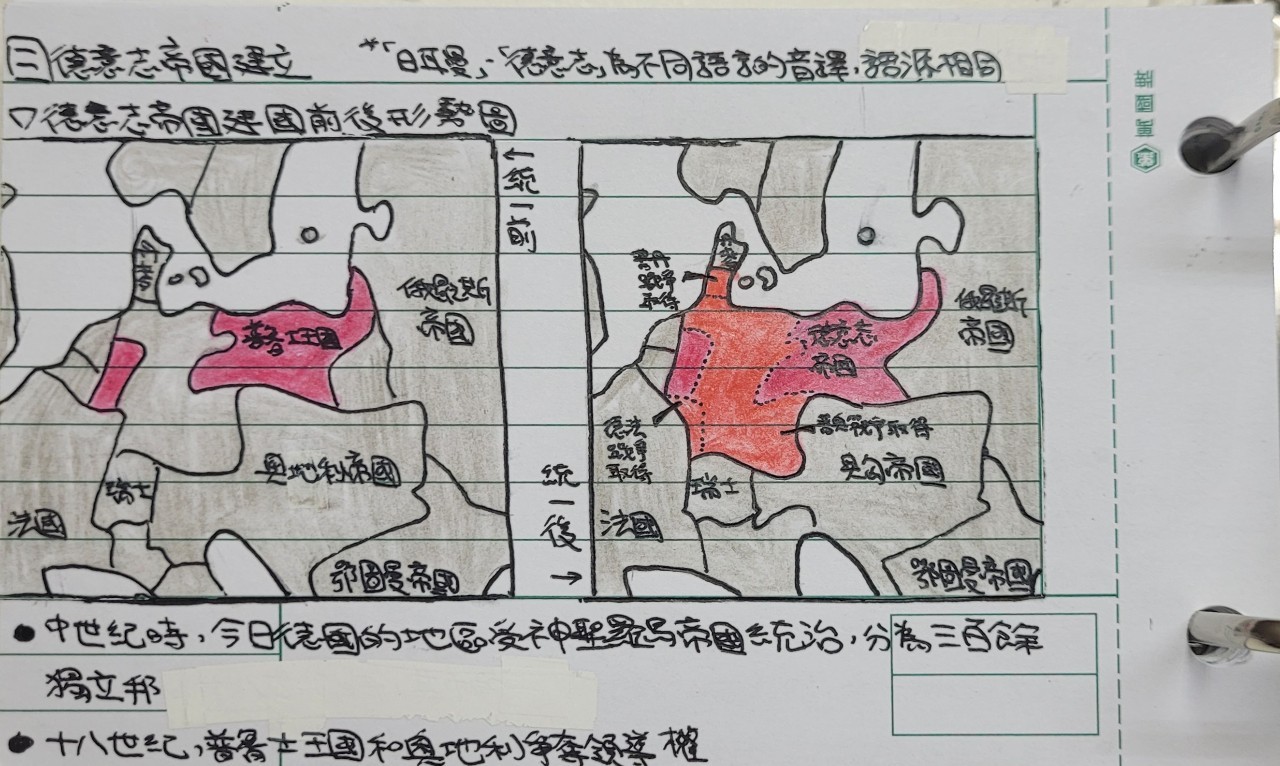 三 德意志帝國建立 *「日耳曼」、「德意志」為不同語言的音譯，語源相同
▽德意志帝國建國前後形勢圖
↑統一前
丹麥
普魯士王國
俄羅斯帝國
奧地利帝國
瑞士
法國
鄂圖曼帝國
統一後→
普丹戰爭取得
丹麥
德意志帝國
俄羅斯帝國
德法戰爭取得
普奧戰爭取得
奧匈帝國
瑞士
法國
鄂圖曼帝國
●中世紀時，今日德國的地區受神聖羅馬帝國統治，分為三百餘
獨立邦
●十八世紀，普魯士王國和奧地利爭奪領導權